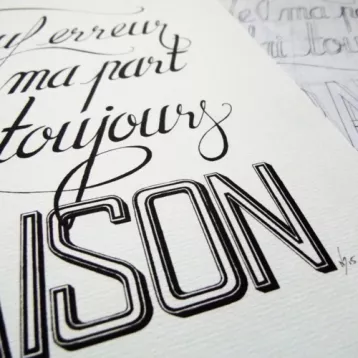 uf erreur
ma part
toujours
AISON
el ma pa
ai tou